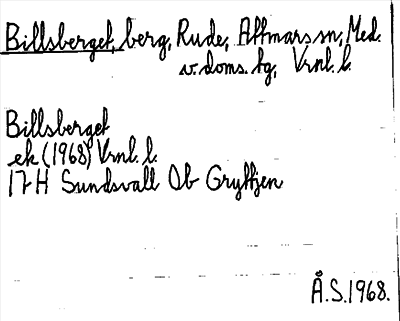 Billsberget, berg, Rude, Attmars sn, Med.
v. doms. hg, Vrnl. l.
Billsberget
ek (1968) Vrnl. l.
17H Sundsvall Ob Gryttjen
Å.S. 1968.